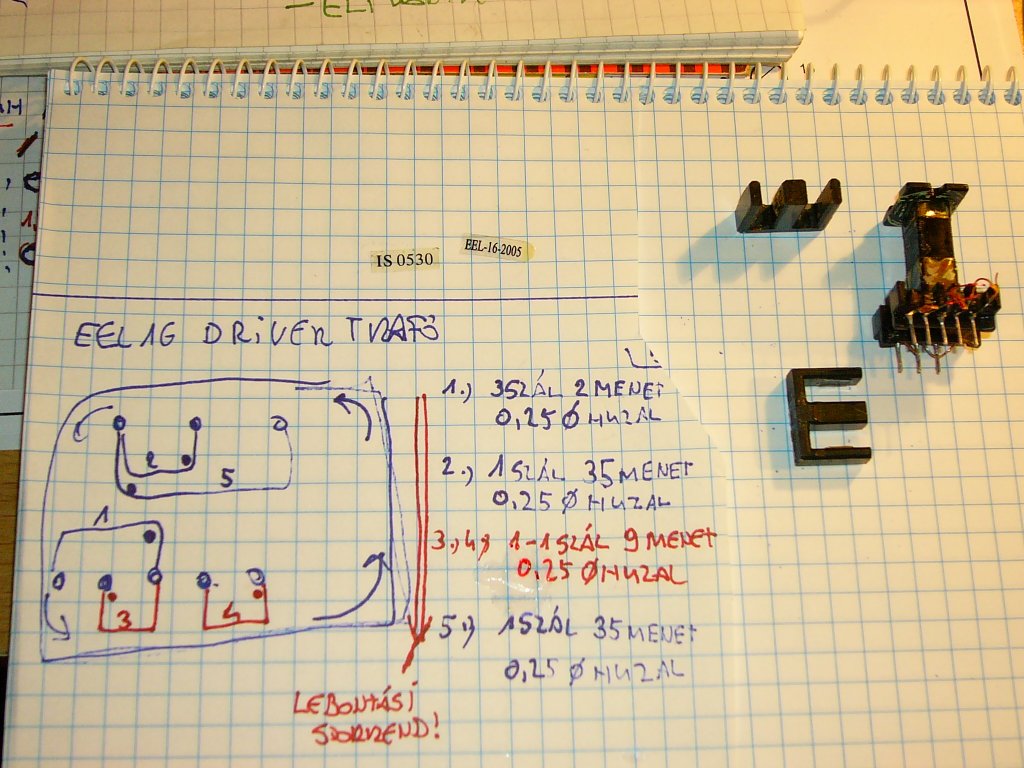 IS 0530
EEL-16-2005
EEL16 DRIVER TRAFÓ
1.) 3SZÁL 2 MENET
0,25 Ø HUZAL
2.) 1 SZÁL 35 MENET
0,25 Ø HUZAL
3., 4.) 1-1 SZÁL 9 MENET
0,25 Ø HUZAL
5.) 1 SZÁL 35 MENET
0,25 Ø HUZAL
2
5
1
3
4
LEBONTÁSI
SORREND!